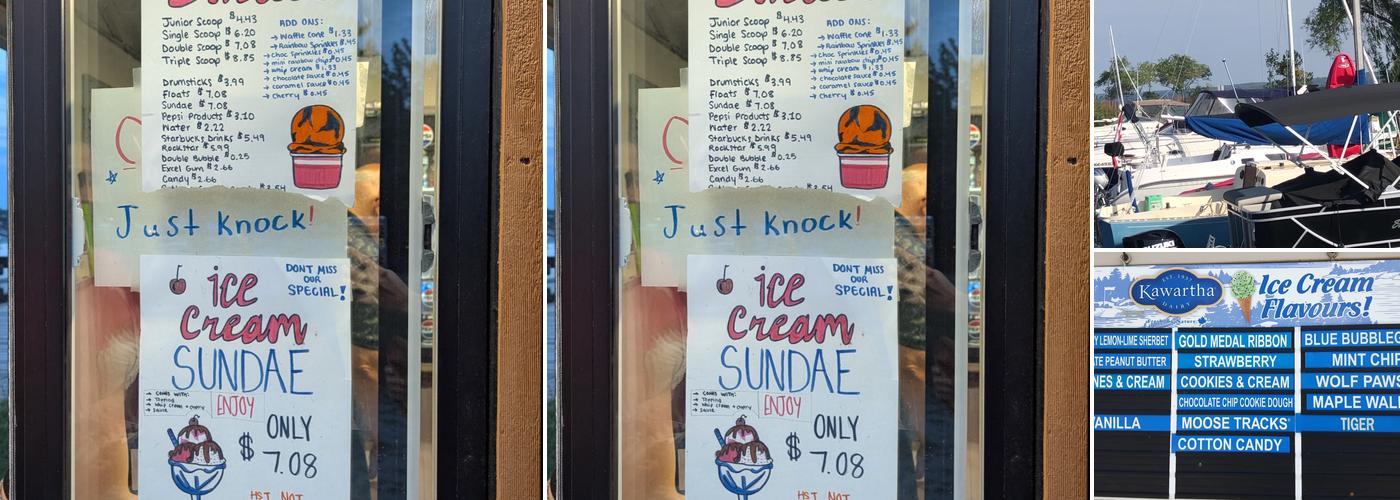 Junior Scoop $4.43
Single Scoop $6.20
Double Scoop $7.08
Triple Scoop $8.85
Drumsticks $3.99
Floats $7.08
Sundae $7.08
Pepsi Products $3.10
Water $2.22
Starbucks Drinks $5.49
Rockstar $5.99
Double Bubble $0.25
Excel Gum $2.66
Candy $2.66
ADD ONS:
→ Waffle Cone $1.33
→ Rainbow Sprinkles $.45
→ Choc Sprinkles $0.45
→ mini rainbow chips $0.45
→ whip cream $1.33
→ chocolate sauce $0.45
→ caramel sauce $0.45
→ Cherry $0.45
Just Knock!
DONT MISS
OUR
SPECIAL!
ice
Cream
SUNDAE
→ COMES WITH:
→ Topping
→ Whip Cream + Cherry
→ Sauce
ENJOY
ONLY
$ 7.08
HST NOT
Junior Scoop $4.43
Single Scoop $6.20
Double Scoop $7.08
Triple Scoop $8.85
Drumsticks $3.99
Floats $7.08
Sundae $7.08
Pepsi Products $3.10
Water $2.22
Starbucks Drinks $5.49
Rockstar $5.99
Double Bubble $0.25
Excel Gum $2.66
Candy $2.66
ADD ONS:
→ Waffle Cone $1.33
→ Rainbow Sprinkles $.45
→ Choc Sprinkles $0.45
→ mini rainbow chips $0.45
→ whip cream $1.33
→ chocolate sauce $0.45
→ caramel sauce $0.45
→ Cherry $0.45
Just Knock!
DONT MISS
OUR
SPECIAL!
ice
Cream
SUNDAE
→ COMES WITH:
→ Topping
→ Whip Cream + Cherry
→ Sauce
ENJOY
ONLY
$ 7.08
HST NOT
SUZUKI
EST. 1937
Kawartha
DAIRY
Ice Cream
Flavours!
Y LEMON-LIME SHERBET
TE PEANUT BUTTER
NES & CREAM
VANILLA
GOLD MEDAL RIBBON
STRAWBERRY
COOKIES & CREAM
CHOCOLATE CHIP COOKIE DOUGH
MOOSE TRACKS
COTTON CANDY
BLUE BUBBLEG
MINT CHIP
WOLF PAWS
MAPLE WAL
TIGER